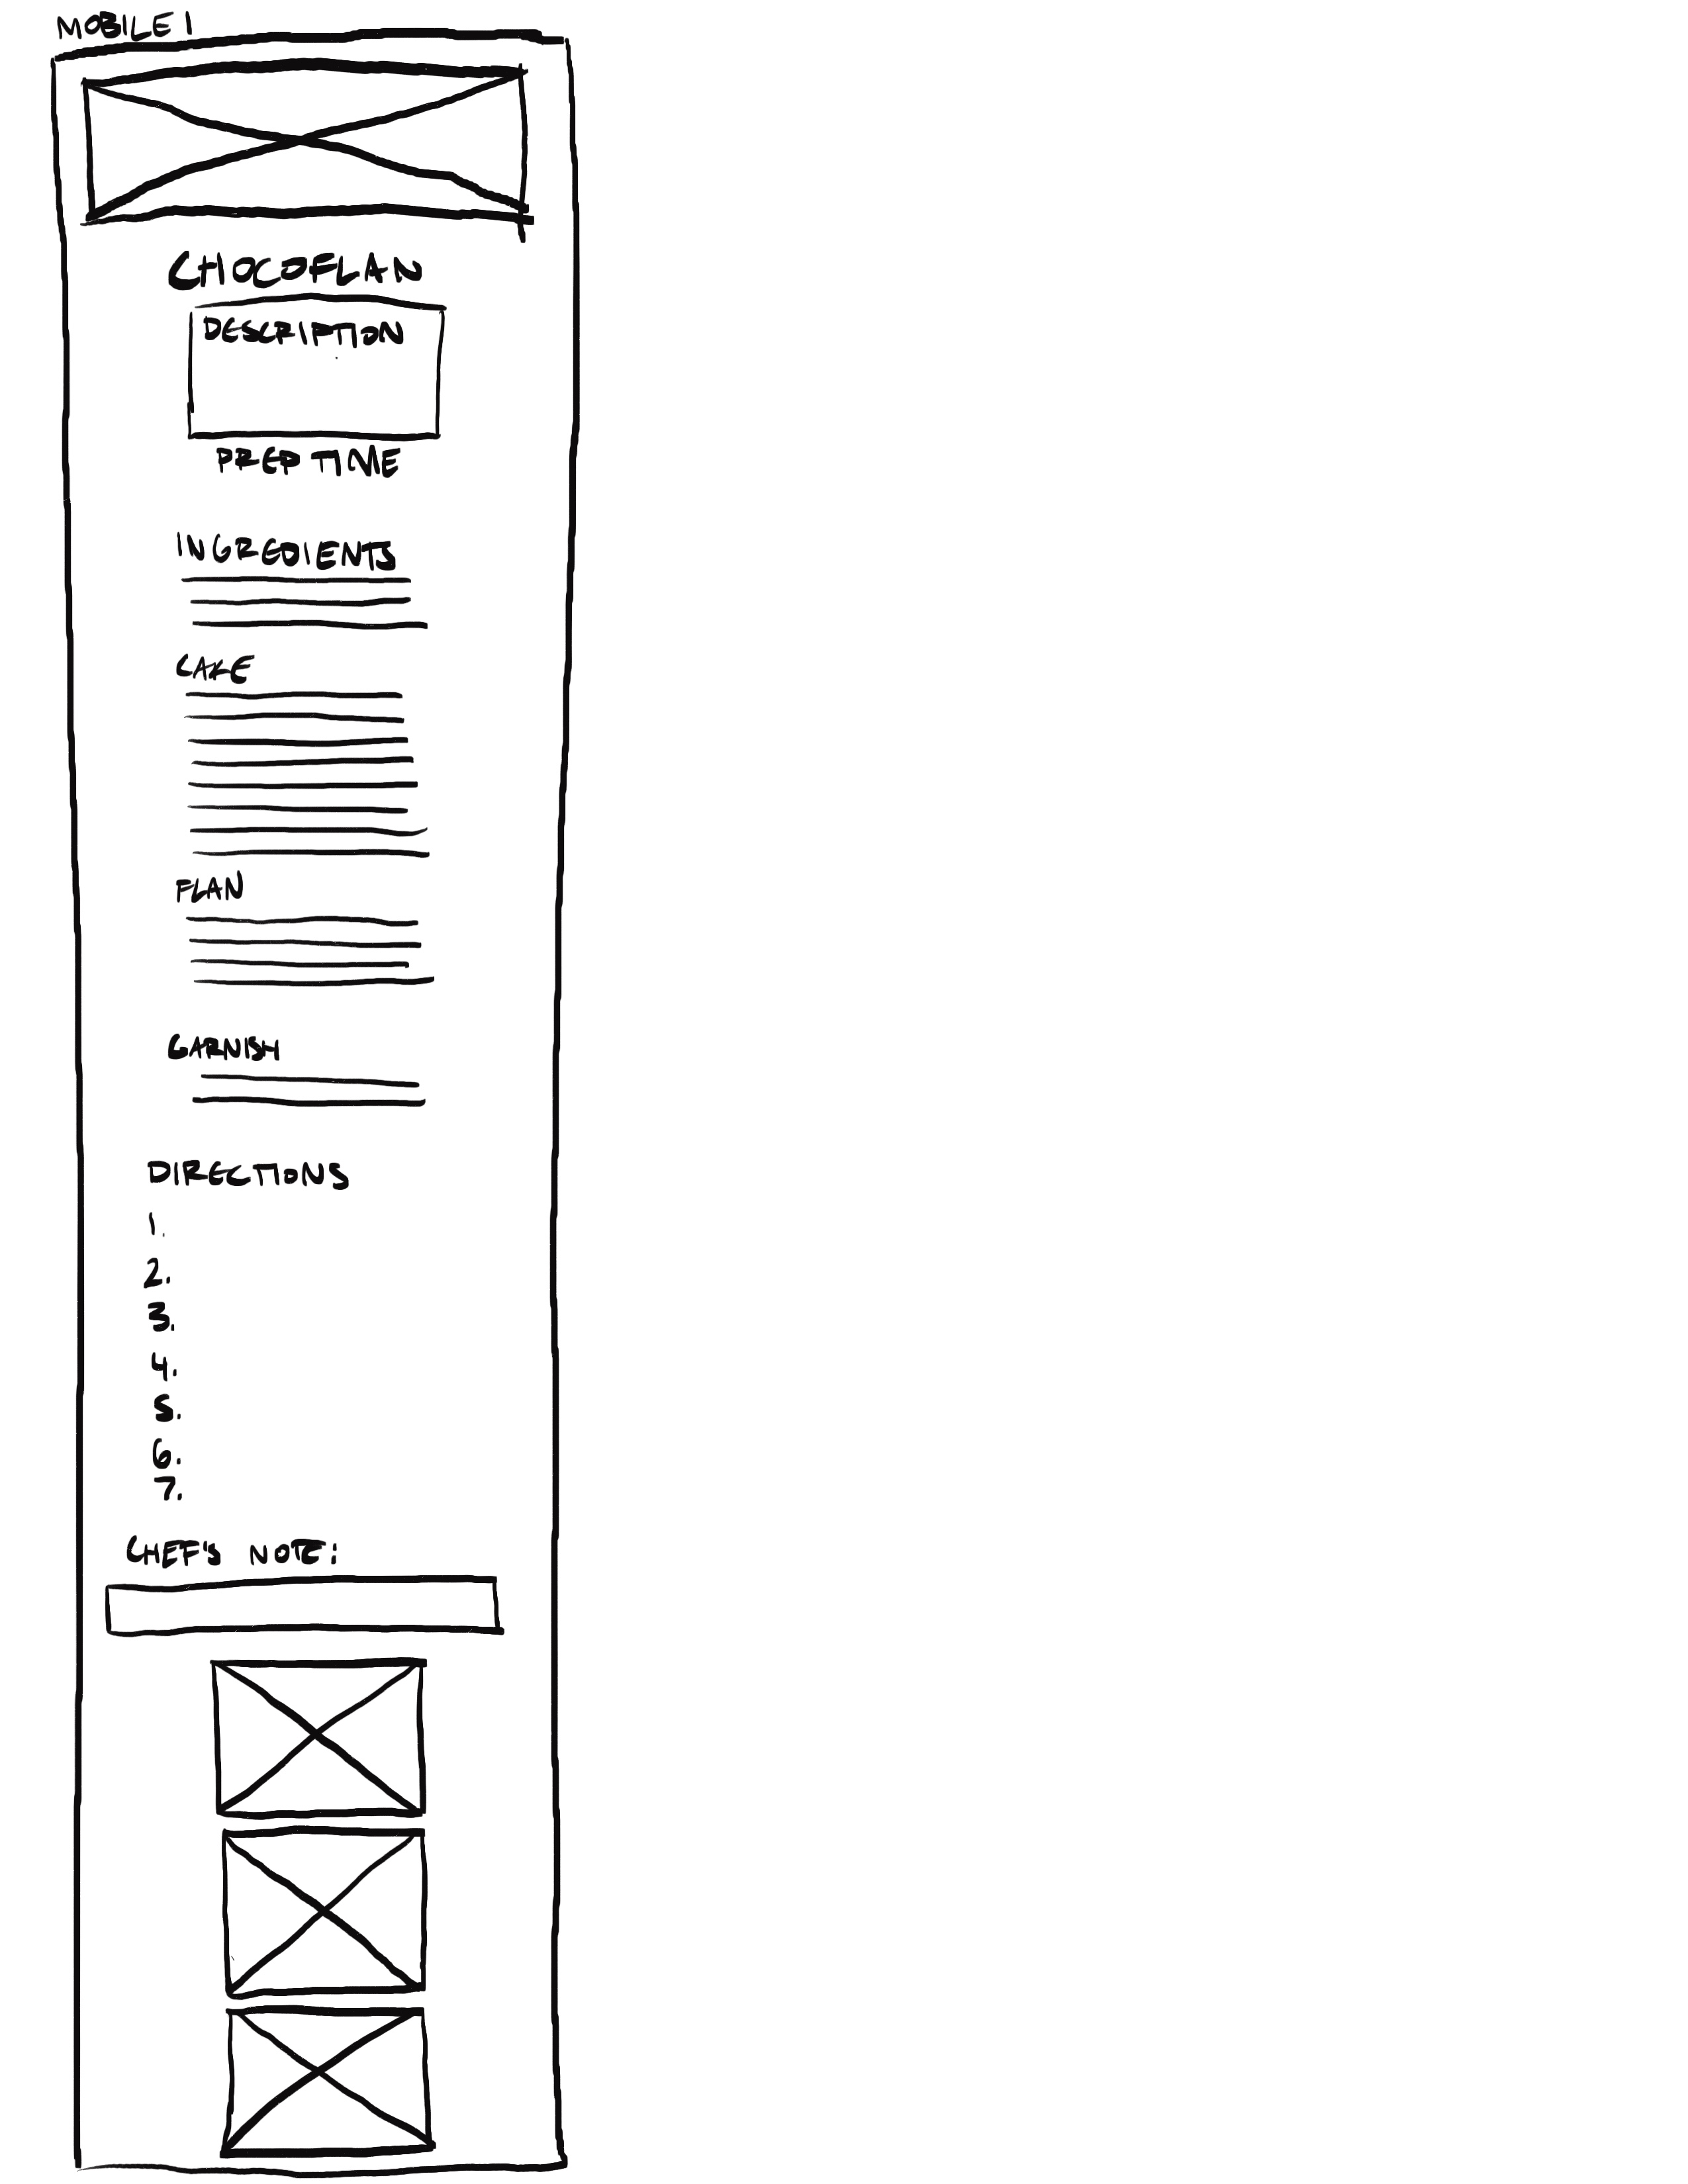 MOBILE 1
CHOCOFLAN
DESCRIPTION
PREP TIME
INGREDIENTS
CAKE
FLAN
GARNISH
DIRECTIONS
1.
2.
3.
4.
5.
6.
7.
CHEF'S NOTE: